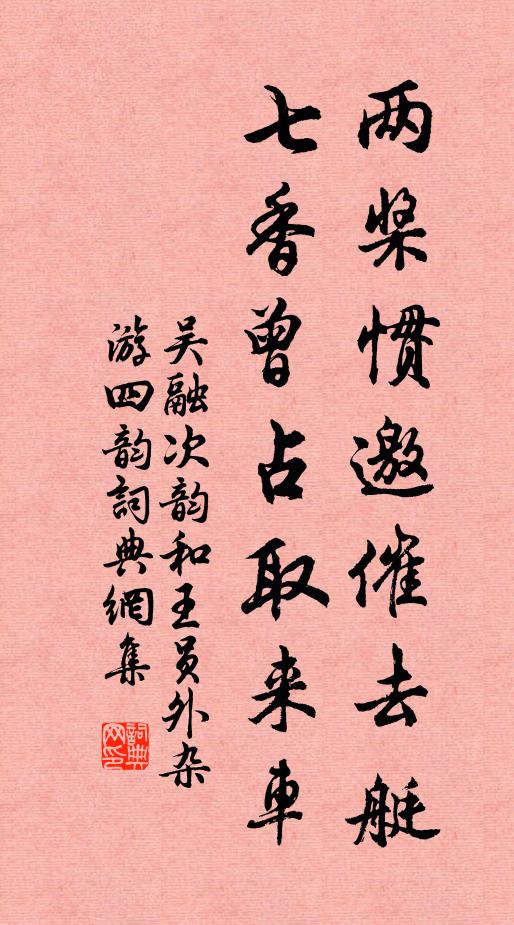 两桨惯邀催去艇
七香曾占取来车
吴融次韵和王员外杂
游四韵詞典網集
詞典网印